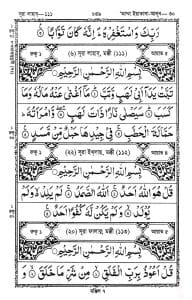 সূরা লাহাব—১১১
رَبِّكَ وَاسْتَغْفِرْهُ ۚ إِنَّهُ كَانَ تَوَّابًا
রুকূ ১ (৬) সূরা লাহাব, মক্কী (১১১) আয়াত ৫
بِسْمِ اللهِ الرَّحْمٰنِ الرَّحِيْمِ
تَبَّتْ يَدَا أَبِي لَهَبٍ وَتَبَّ مَا أَغْنَى عَنْهُ مَالُهُ وَمَا
كَسَبَ سَيَصْلَى نَارًا ذَاتَ لَهَبٍ وَامْرَأَتُهُ
حَمَّالَةَ الْحَطَبِ فِي جِيدِهَا حَبْلٌ مِنْ مَسَدٍ
রুকূ ১ সূরা ইখলাছ, মক্কী (১১২) আয়াত ৪
بِسْمِ اللهِ الرَّحْمٰنِ الرَّحِيْمِ
قُلْ هُوَ اللهُ أَحَدٌ اللهُ الصَّمَدُ لَمْ يَلِدْ وَلَمْ
يُولَدْ وَلَمْ يَكُنْ لَهُ كُفُوًا أَحَدٌ
রুকূ ১ (২০) সূরা ফালাক্ব, মক্কী (১১৩) আয়াত ৫
بِسْمِ اللهِ الرَّحْمٰنِ الرَّحِيْمِ
قُلْ أَعُوذُ بِرَبِّ الْفَلَقِ مِنْ شَرِّ مَا خَلَقَ وَ
মঞ্জিল ৭